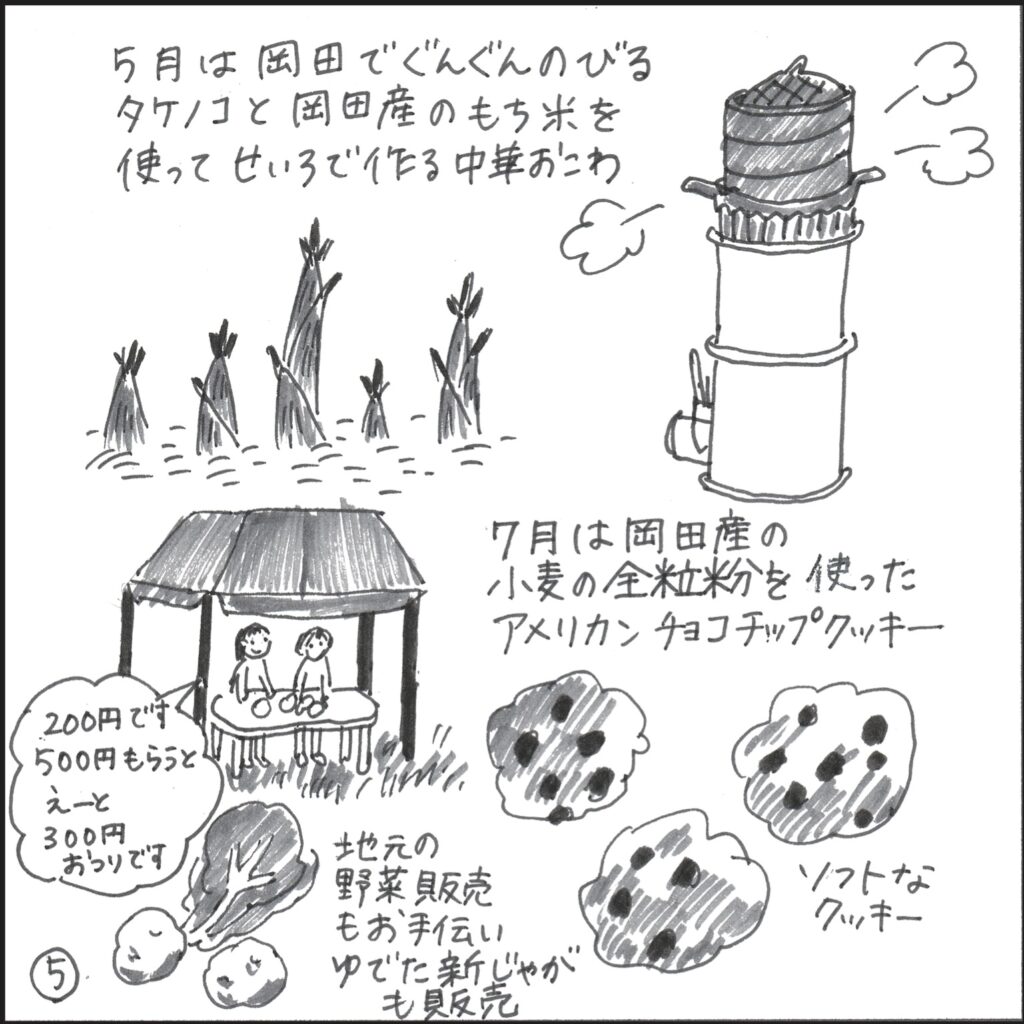 5月は岡田でぐんぐんのびる
タケノコと岡田産のもち米を
使ってせいろで作る中華おこわ
7月は岡田産の
小麦の全粒粉を使った
アメリカンチョコチップクッキー
200円です
500円もらうと
えーと
300円
おつりです
地元の
野菜販売
もお手伝い
ゆでた新じゃが
も販売
ソフトな
クッキー
5